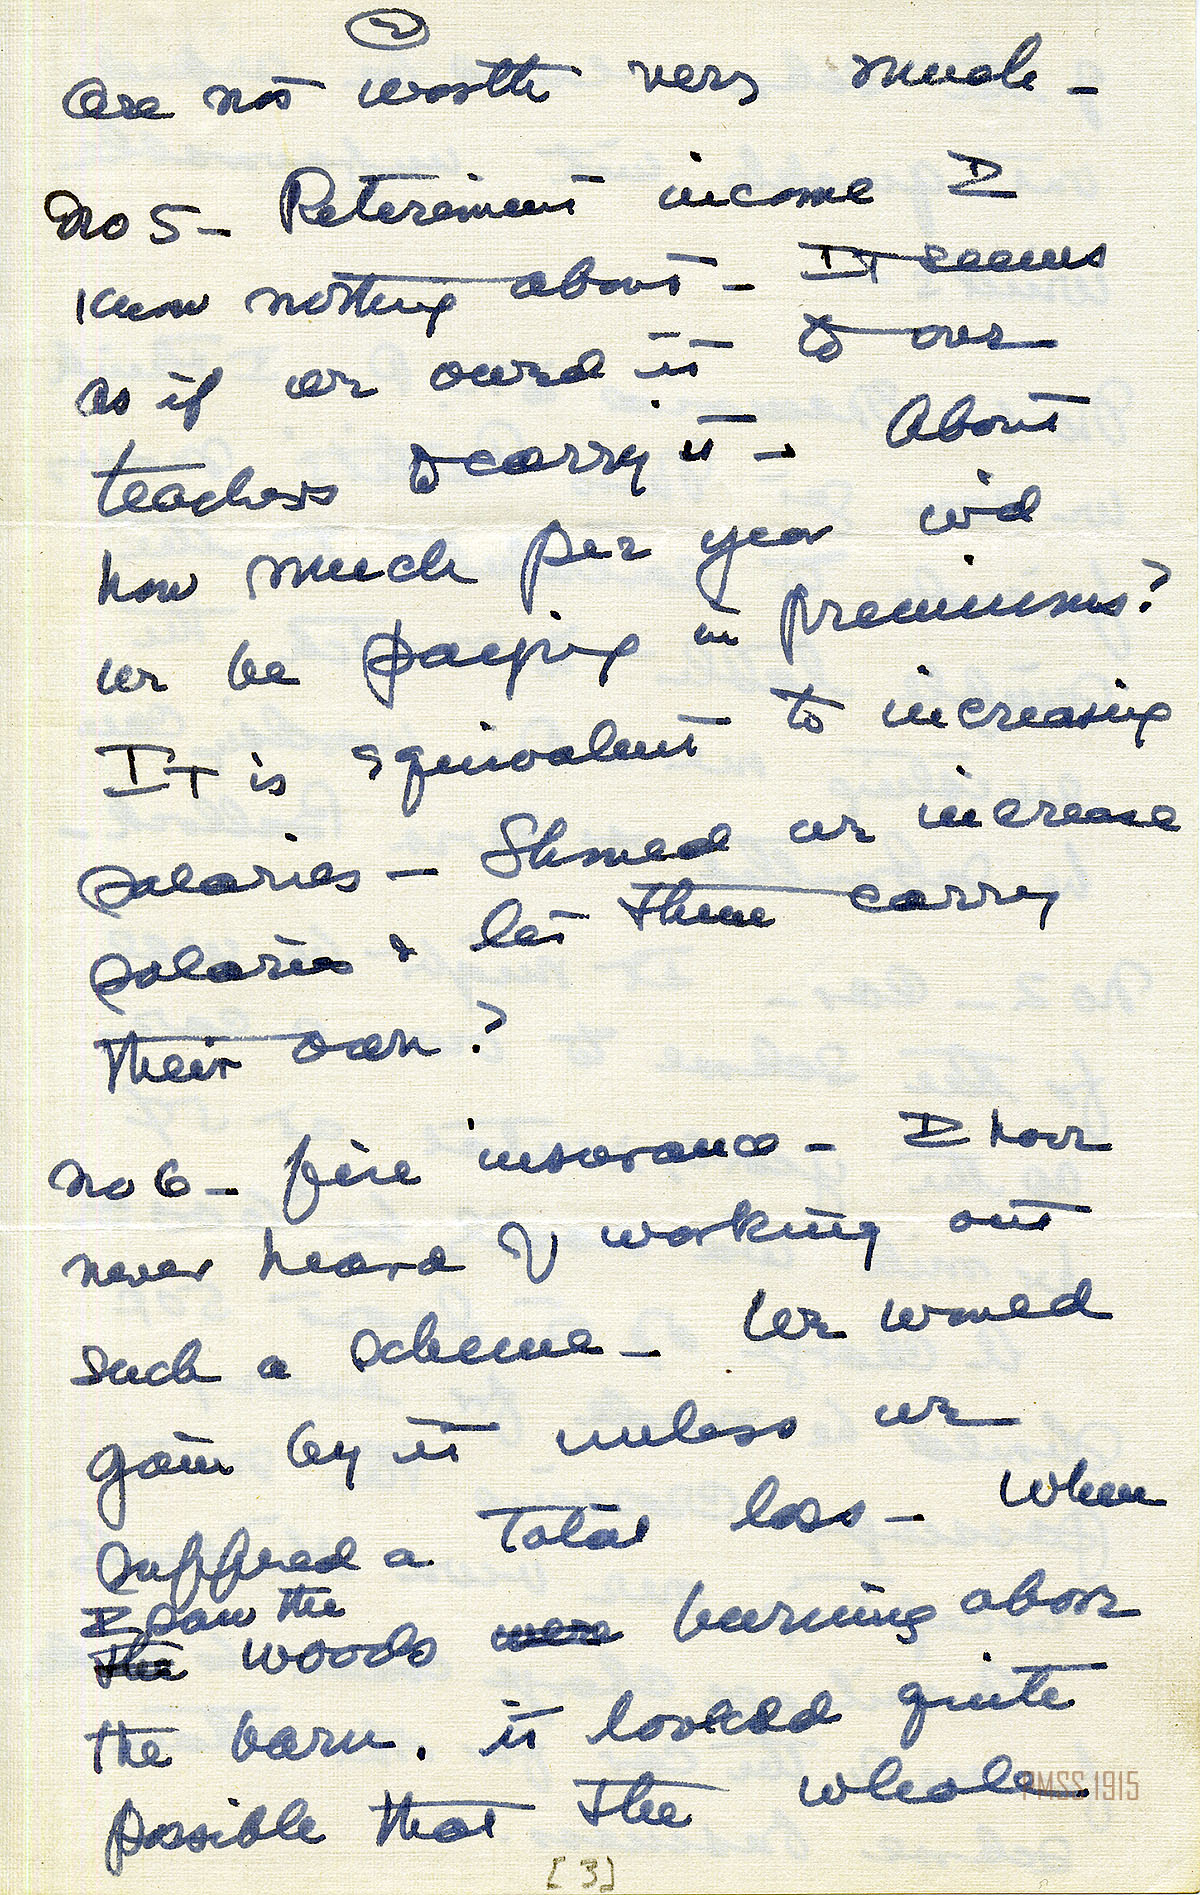 2
are not worth very much –
No 5 – Reterement income I
know nothing about – It seems
as if we owed it to our
teachers to carry it – About
how much per year w'd
we be paying in premiums?
It is equivalent to increasing
salaries – Should we increase
salaries & let them carry
their own?
No 6 – fire insurance – I have
never heard of working out
such a scheme – We would
gain by it unless we
suffered a total loss – When
I saw the
the woods were burning above
the barn. it looked quite
possible that the whole
PMSS 1915
[3]